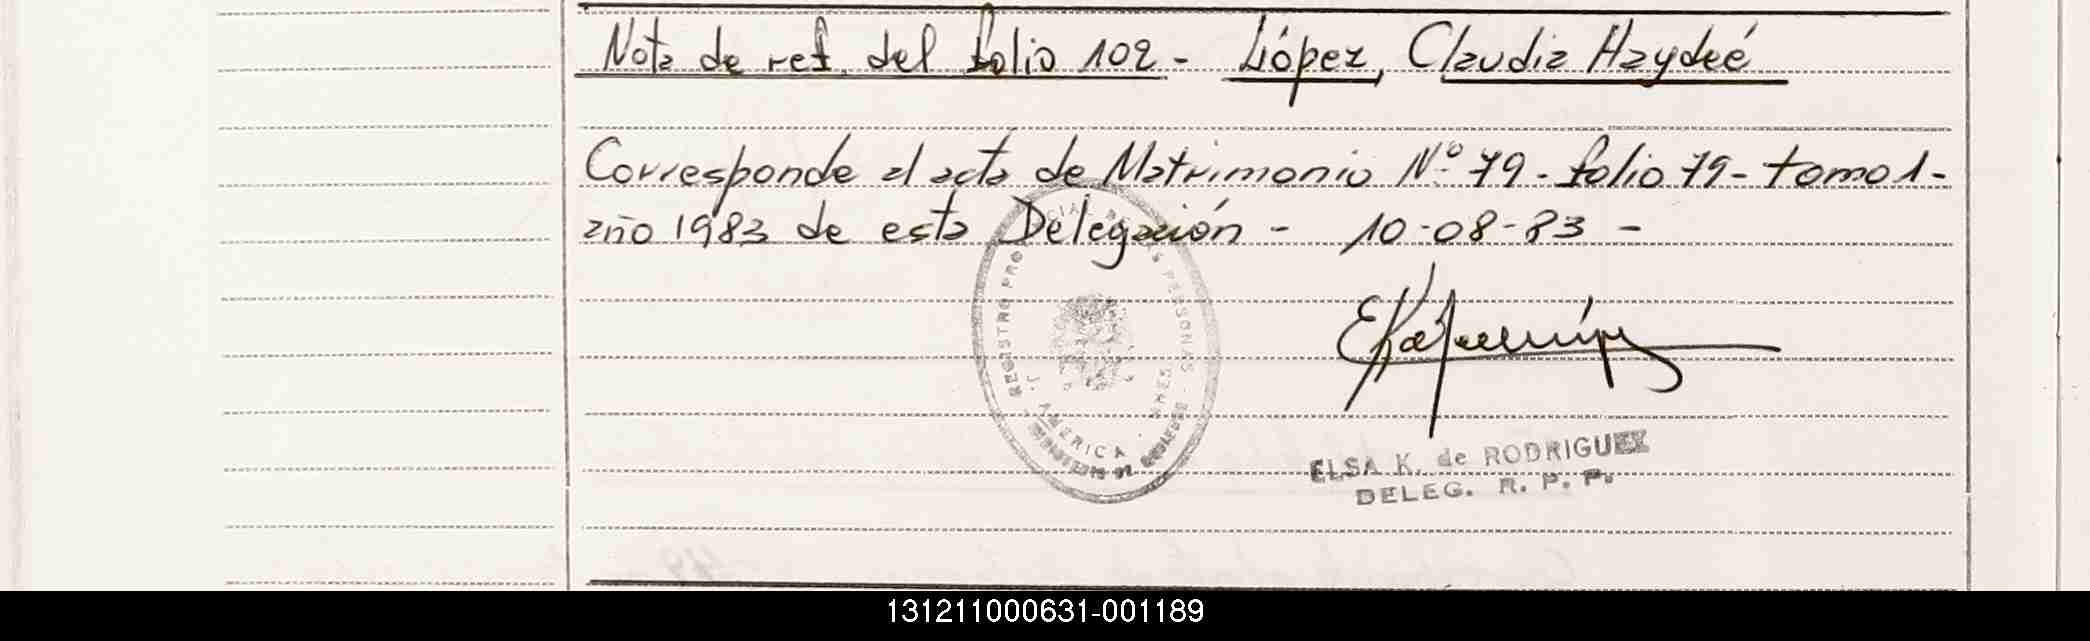 Nota de ref. del folio 102 - López, Claudia Haydeé
Corresponde al acta de Matrimonio Nº 79 - folio 79 - tomo 1 -
año 1983 de esta Delegación - 10-08-83 -
REGISTRO PROVINCIAL DE LAS PERSONAS
AMERICA
ELSA K. de RODRIGUEZ
DELEG. R. P. P.
131211000631-001189